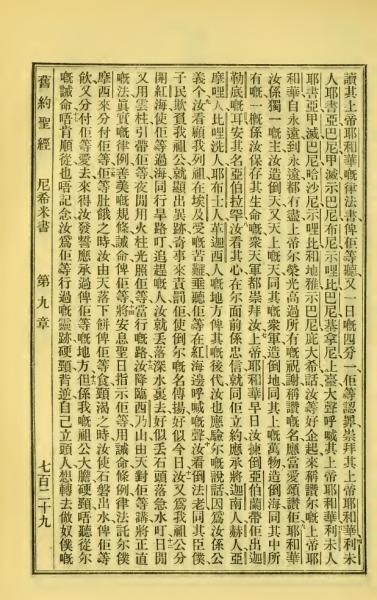 讀其上帝耶和華嘅律法書俾佢等聽又一日嘅四分一佢等認罪崇拜其上帝耶和華利未
人耶書亞巴尼甲滅示巴尼布尼示哩比巴尼基拿尼上臺大聲呼喊其上帝耶和華利未人
耶書亞甲滅巴尼哈沙尼示哩比和地雅示巴尼庇大希話汝等好企起來稱讚尔嘅上帝耶
和華自永遠到永遠都有盡上帝尔榮光高過所有嘅祝謝稱讚嘅名應當愛頌讚佢耶和華
汝係獨一嘅主汝造倒天又天上嘅天同其嘅衆軍造倒地同其上嘅萬物造倒海同其中所
有嘅一概係汝保存其生命嘅衆天軍都崇拜汝上帝耶和華早日汝揀倒亞伯蘭帶佢出迦
勒底嘅耳安其名亞伯拉罕汝看其心在尔面前係忠信就同佢立約應承將迦南人赫人亞
摩哩人比哩洗人耶布士人革迦西人嘅地方俾其嘅後代汝也應驗尔嘅說話因爲汝係公
義今汝看顧我列祖在埃及受嘅苦難垂聽佢等在紅海邊呼喊嘅聲汝看倒法老同其臣僕
子民欺負我祖公就顯出異跡奇事來責罰佢使倒尔嘅名傳揚好似今日汝又爲我祖公分
開紅海使佢等過海同行旱路叮追趕嘅人汝就丢落深水裏去好似丢石頭落急水叮日間
又用雲柱引帶佢等夜間用火柱光照佢等當行嘅路汝降臨西乃山由天對佢等講將正直
嘅法眞實嘅律例善美嘅規條誡命俾佢等將安息聖日指示佢等用誡命條例律法託尔僕
摩西來分付佢等佢等肚餓之時汝由天落下餅俾佢等食頸渴之時汝使石磐出水俾佢等
飲又分付佢等愛去來得汝發誓應承過俾佢等嘅地方但係我嘅祖公大膽硬頸唔聽從尔
嘅誡命唔肯順從也唔記念汝爲佢等行過嘅靈跡硬頸背逆自己立頭人想轉去做奴僕嘅
舊約聖經 尼希米書 第九章 七百二十九